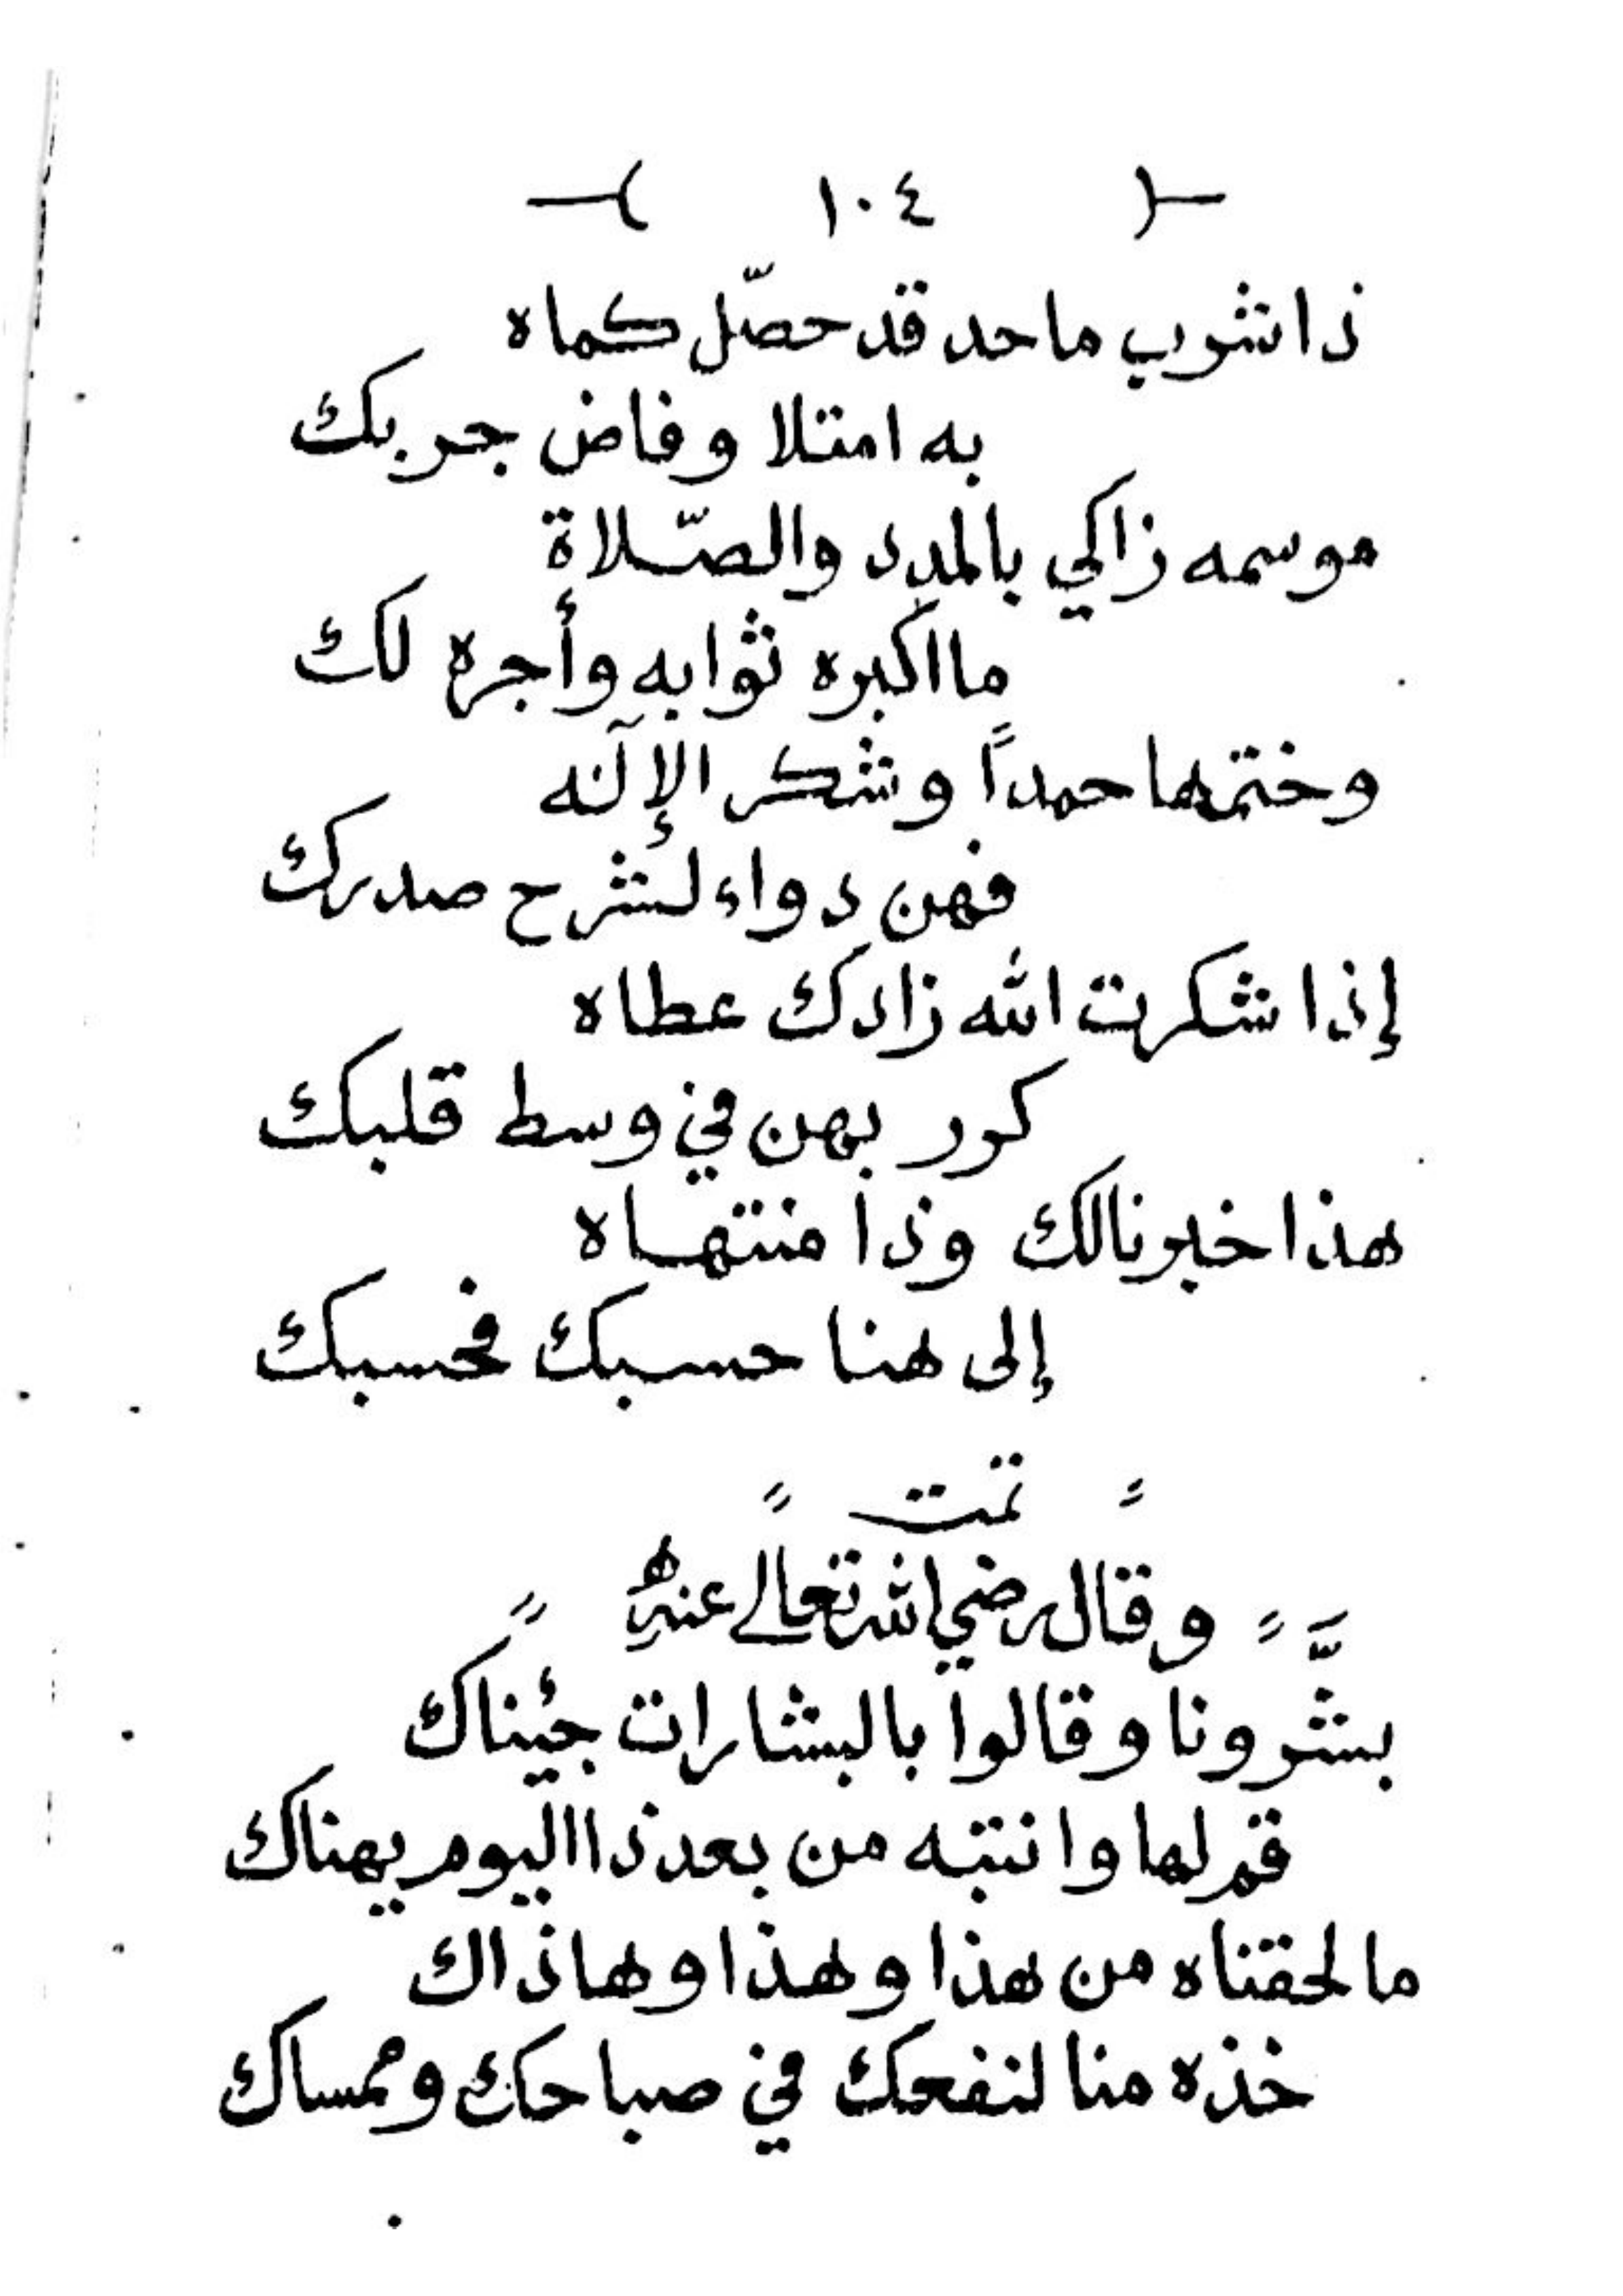 ١٠٤
ذا شوب ما حد قد حصّل كماه
به امتلا وفاض جربك
موسمه زاكي بالمدد والصّلاة
ما اكبره ثوابه وأجره لك
وختمها حمداً وشكر الإلٓه
فهن دواء لشرح صدرك
إذا شكرت الله زادك عطاه
كور بهن في وسط قلبك
هذا خبر نالك وذا منتهاه
إلى هنا حسبك فحسبك
تمت
وقال رضي الله تعالى عنه
بشَّرونا وقالوا بالبشارات جئيناك
قم لها وانتبه من بعد ذا اليوم يهناك
ما لحقناه من هذا وهذا وهاذاك
خذه منا لنفعك في صباحك وممساك